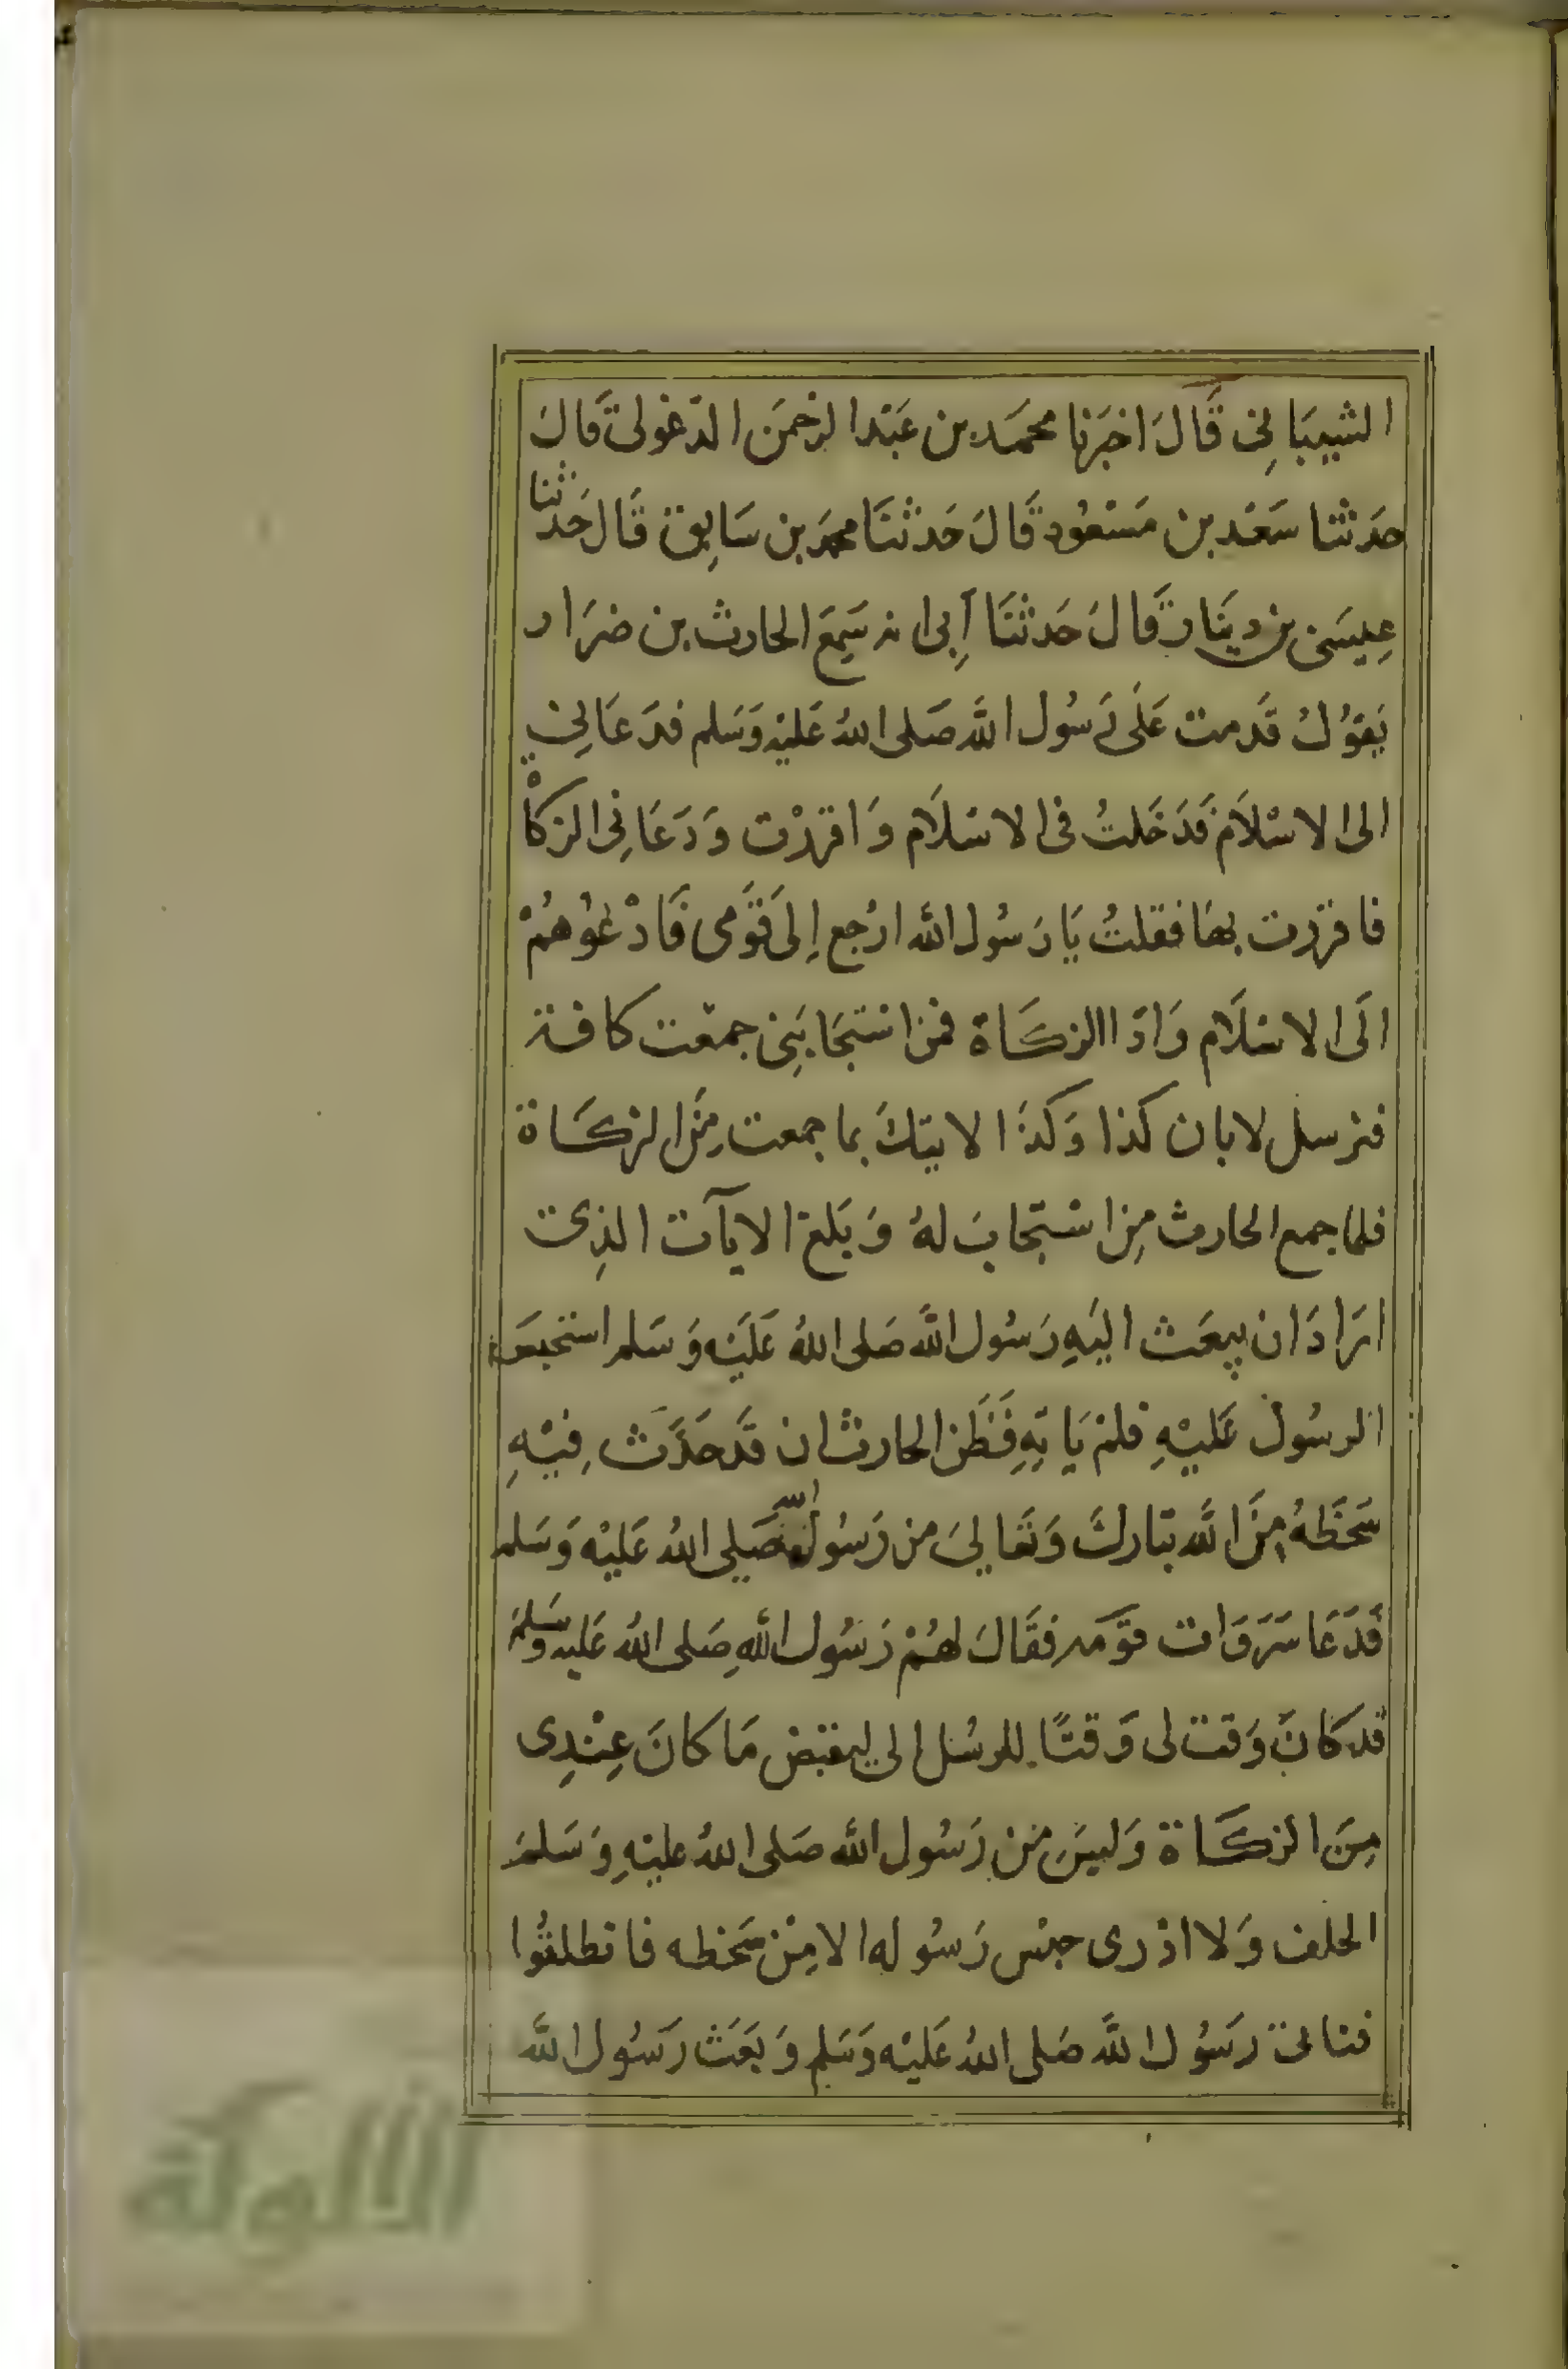 الشيبَانِي قَالَ اخبَرنا محمَد بن عَبْد الرحمَن الدغولى قَالَ
حدَثنا سَعْد بن مَسْعُود قَالَ حَدثنَا محمَد بن سَابِق قَال حَدثنا
عِيسَى بن دينَار قَالَ حَدثنَا أَبِى انه سَمِعَ الحارث بن ضرَار
يَقوُلُ قَدمت عَلَى رَسُول اللَّه صَلى اللهُ عَليْهِ وَسَلم فدَعَانِى
الى الاسْلَام فَدَخَلتُ فى الاسْلَام وَاقررْت وَدَعَانِى الزكاْة
فاقررت بهَا فقلتُ يَا رَسُول الله ارْجع إِلى قَومى فَادْعُوهُمْ
الَى الاسْلَام وَادَا الزكَاة فمن استجَابَنِى جمعْت كافة
فترسل لابان كذا وَكذَا لاييتكَ بما جمعت مِنَ الزكَاة
فلما جمع الحارث مِن اسْتجَابَ لهُ وَبَلغ الايآت الذِى
ارَادَ ان يبعَث اليَهِ رَسُول اللَّه صَلى اللهُ عَلَيْه وَسَلم
الرسُول عَليْهِ فلمْ يَاتِهِ فَظَن الحارث ان قَد حَدَث فِيْهِ
سَخطَهُ مِنَ اللَّه تبَارك وَتعَالى من رَسُول الله صَلى اللهُ عَليْه وَسَلم
فَدَعَا سَرَوَات قوْمه فقَالَ لهُمْ رَسُول اللَّهِ صَلى اللهُ عَليه وسَلم
قَد كانَ وَقت لى وَقتًا للرسُل الى ليقبض مَا كانَ عِنْدِى
مِنَ الزكَاة وَليسَ من رَسُول الله صَلى اللهُ عليْهِ وَسَلمَ
الخلف وَلا ادْرى حبْس رَسُوله الا مِنْ سَخطه فانطلقُوا
فناتى رَسُول اللَّه صَلى اللهُ عَليْه وَسَلم وَبَعَث رَسُول اللَّه
الألوكة